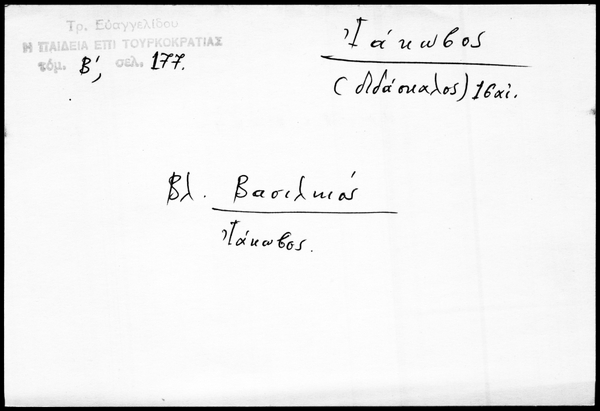 Τρ. Εὐαγγελίδου
Η ΠΑΙΔΕΙΑ ΕΠΙ ΤΟΥΡΚΟΚΡΑΤΙΑΣ
τόμ. Β', σελ. 177.
Ἰάκωβος
(διδάσκαλος) 16 αἰ.
Βλ. Βασιλικιός
Ἰάκωβος.